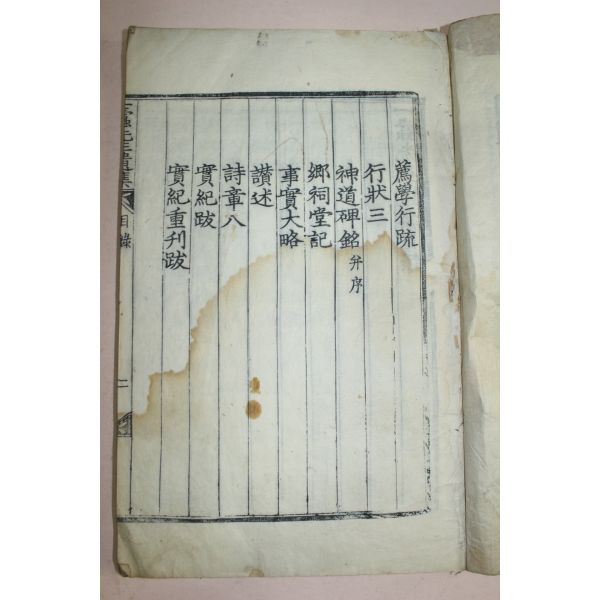 薦學行疏
行狀三
神道碑銘 幷序
鄉祠堂記
事實大略
讚述
詩章八
實紀跋
實紀重刊跋
先生實集
目錄
二